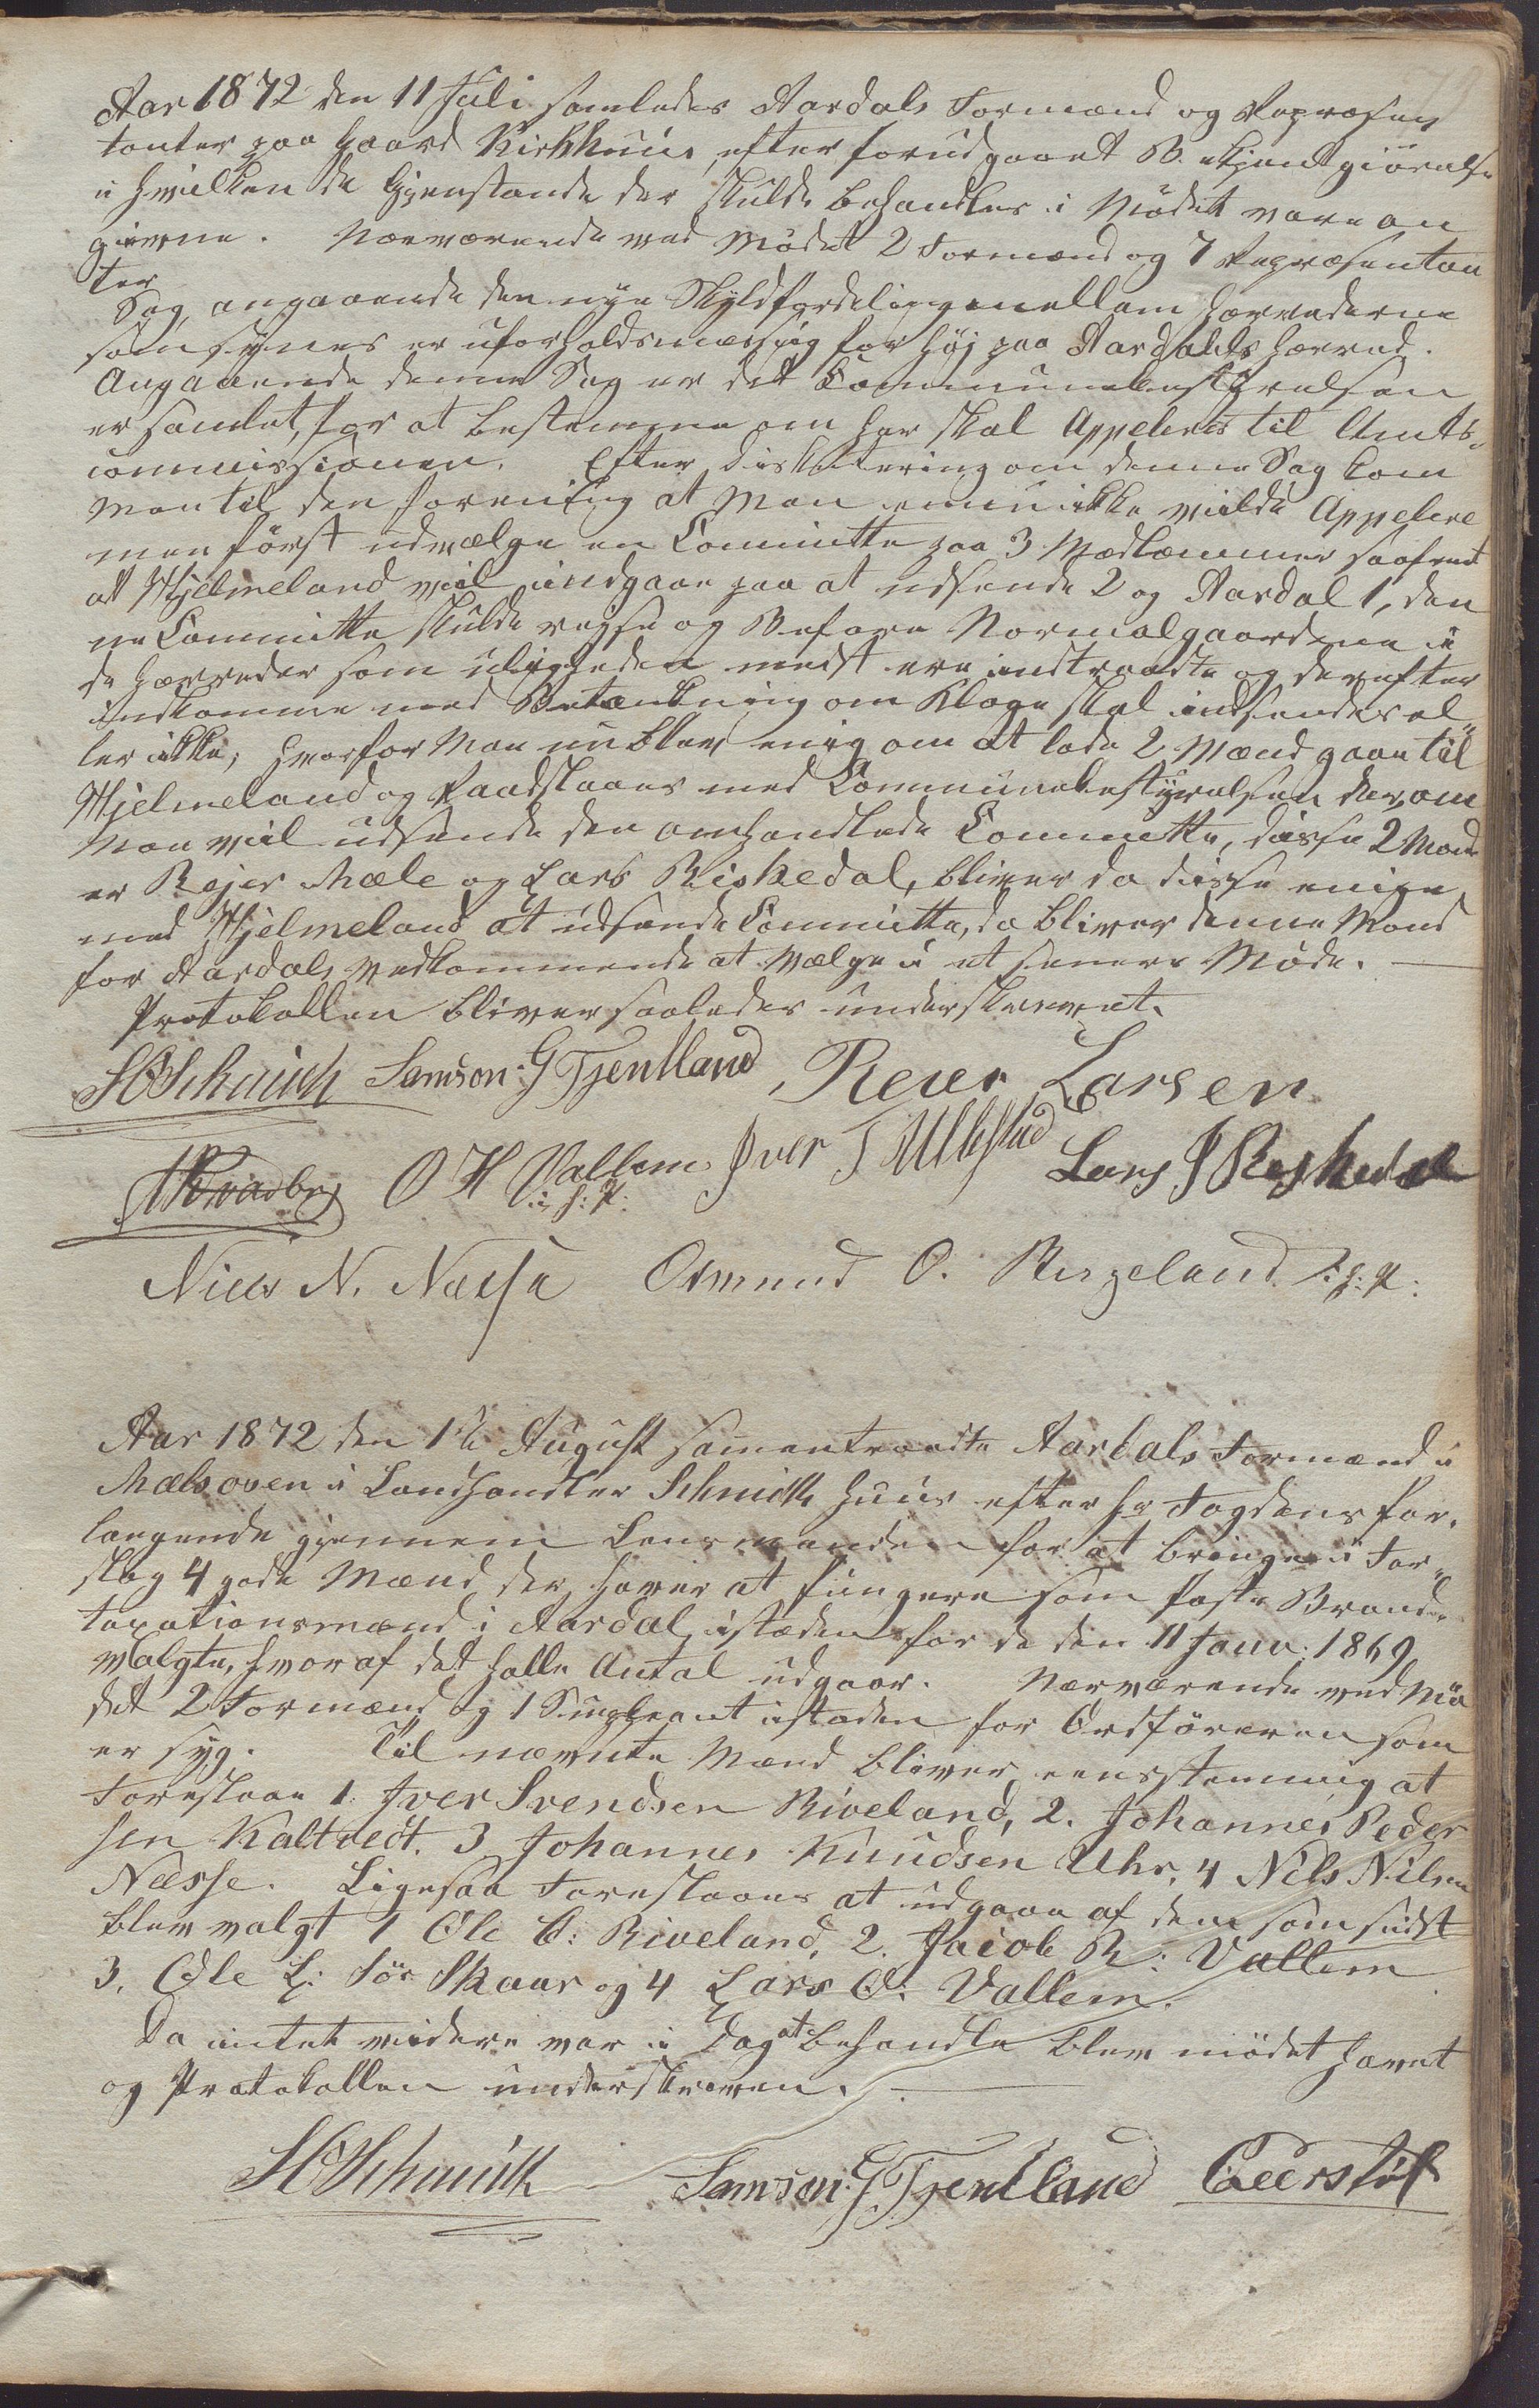 Aar 1872 den 11 Juli samledes Aardals Formænd og Repræsen
tanter paa Gaard Kirkhuus, efter forudgaaet Bekjentgiörelse
i hvilken de Gjenstande der skulde behandles i Mödet vare an
givvne. Nærværende ved Mödet 2 Formænd og 7 Repræsentan
ter
Sag, angaaende den nye Skyldfordeling mellem Herrederne
som synes er uforholdsmæssig for höj paa Aardals Herred.
Angaaende denne Sag er det Communebestÿrelsen
er samlet, for at bestemme om her skal Appeleres til Amts-
commissionen. Efter diskutering om denne Sag kom
man til den forening at Man ennu ikke vilde Appelere
men först udvælge en Committe paa 3 Medlemmer saafremt
att Hjelmeland vil indgaae paa at udsende 2 og Aardal 1, den
ne Committe skulde rejse og Befare Normalgaardene i
de Herreder som uligheden mest ere indtraadte og derefter
indkomme med Betænkning om Klage skal indsendes el-
ler ikke; hvorfor Man nu blev enig om at lade 2 Mænd gaae til
Hjelmeland og Raadslaaes med Communebestyrelsen der, om
Man vil udsende den omhandlede Committe, disse 2 Mænd
er Rejer Mæle og Lars Riskedal, bliver da disse enige
med Hjelmeland at udsende Committe, da bliver denne Mand
for Aardals vedkommende at vælge i et senere Möde.
Protokollen bliver saaledes underskrevet.
HSchmidt Samson G Tjentland, Reier Larsen
O H Vallem Iver T Ullestad Lars J Reskedal
i. h. P.
Niels N. Nœsse Osmund O. Bergeland i. h. P.
Aar 1872 den 1te August sammentraadte Aardals Formænd i
Mælsoven i Landhandler Schmidts huus efter hr Fogdens for-
langende gjennem Lensmanden for at bringe i For-
slag 4 gode Mænd der haver at fungere som faste Brand-
taxationsmænd i Aardal istæden for de den 11 Janv: 1869
valgte, hvoraf det halle Antal udgaar. Nærværende ved Mö
det 2 Formænd og 1 Supleant istæden for Ordföreren som
er syg. Til nævnte Mænd bliver eensstemmig at
Foreslaae 1. Iver Svendsen Riveland, 2. Johannes Peder
sen Kaltveit. 3. Johannes Knudsen Uhr, 4 Nels Nilsen
Nœsse. Ligesaa Foreslaaes at udgaae af dem som sidst
blev valgt 1 Ole O: Riveland, 2. Jacob R: Vallem
3. Ole L: Sör Skaar og 4 Lars O: Vallem.
Da intet videre var i Dag at behandle blev mödet hævet
og Protokollen underskreven.
HSchmidt Samson G Tjentland